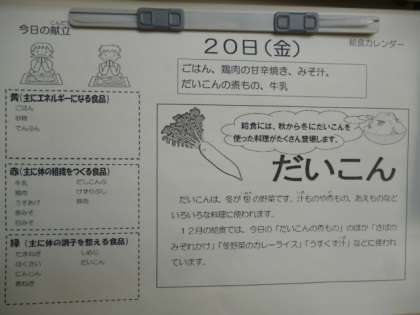 今日の献立
こんだて
給食カレンダー
20日(金)
ごはん、鶏肉の甘辛焼き、みそ汁、
だいこんの煮もの、牛乳
黄(主にエネルギーになる食品)
ごはん
砂糖
でんぷん
赤(主に体の組織をつくる食品)
牛乳 だしこんぶ
鶏肉 けずりぶし
うすあげ 豚肉
赤みそ
白みそ
緑(主に体の調子を整える食品)
たまねぎ しめじ
はくさい だいこん
にんじん
青ねぎ
給食には、秋から冬にだいこんを
使った料理がたくさん登場します。
だいこん
だいこんは、冬が旬の野菜です。汁ものや煮もの、あえものなど
いろいろな料理に使われます。
12月の給食では、今日の「だいこんの煮もの」のほか「さばの
みぞれかけ」「冬野菜のカレーライス」「うすくず汁」などに使われ
ています。